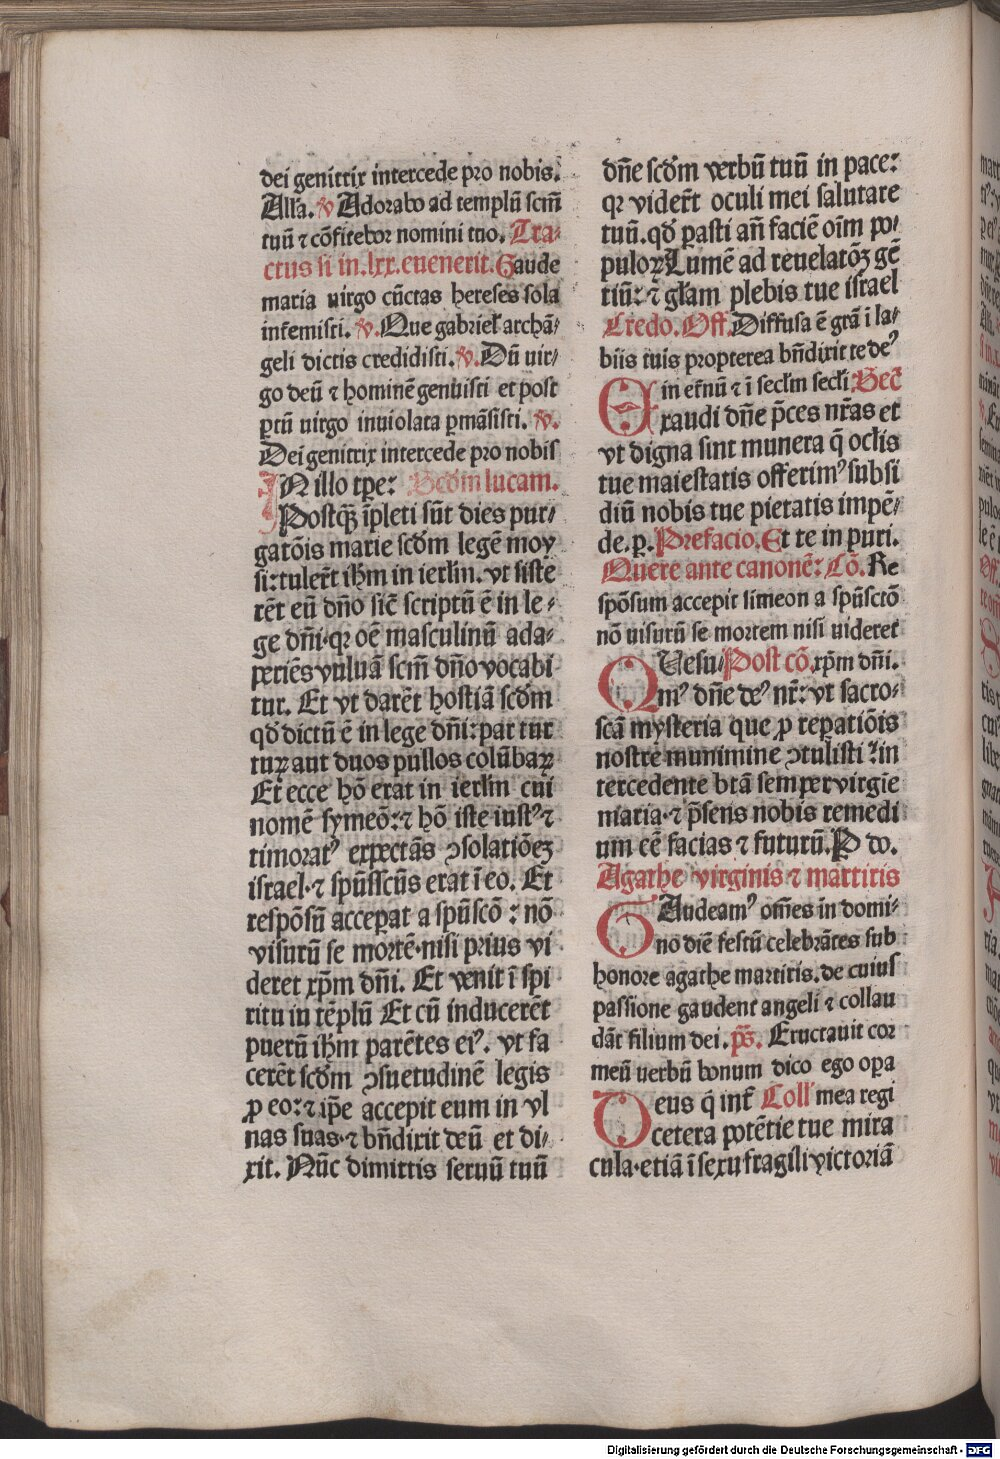 dei genitrix intercede pro nobis.
Alła. ℣ Adorabo ad templũ scm̃
tuũ ⁊ cõfitebor nomini tuo. Tra-
ctus si in .lxx. euenerit. Gaude
maria uirgo cũctas hereses sola
intemisti. ℣. Que gabrieł archã-
geli dictis credidisti. ℣. Dũ uir-
go deũ ⁊ hominẽ genuisti et post
ptũ uirgo inuiolata pmãsisti. ℣.
Dei genitrix intercede pro nobis
IN illo tꝑe: Scd̃m lucam.
Postq̃ȝ ĩpleti sũt dies pur-
gatõis marie scd̃m legẽ moy
si: tuler̃t ih̃m in ierłm. vt siste
rẽt eũ dño sic̃ scriptũ ẽ in le-
ge dñi. qꝛ oẽ masculinũ ada-
periẽs vuluã scm̃ dño vocabi
tur. Et vt darẽt hostiã scd̃m
qd̃ dictũ ẽ in lege dñi: par tur
turꝝ aut duos pullos colũbaꝝ
Et ecce hõ erat in ierłm cui
nomẽ symeõ: ⁊ hõ iste iustꝰ ⁊
timoratꝰ expectãs ↄsolatiõeȝ
israel. ⁊ spũsscũs erat ĩ eo. Et
respõsũ acceperat a spũscõ : nõ
visurũ se mortẽ. nisi prius vi
deret xp̃m dñi. Et venit ĩ spi
ritu in tẽplũ Et cũ inducerẽt
puerũ ih̃m parẽtes eiꝰ. vt fa
cerẽt scd̃m ↄsuetudinẽ legis
ꝓ eo: ⁊ ip̃e accepit eum in vl
nas suas. ⁊ bñdixit deũ et di-
xit. Nũc dimittis seruũ tuũ
dñe scd̃m verbũ tuũ in pace:
qꝛ vider̃t oculi mei salutare
tuũ. qd̃ pasti añ faciẽ oĩm po-
puloꝝ Lumẽ ad reuelatõȝ gẽ
tiũ: ⁊ głam plebis tue israel
Credo. Off. Diffusa ẽ grã ĩ la-
biis tuis propterea bñdixit te deꝰ
in et̃nũ ⁊ ĩ secłm secłi Sec̃
Exaudi dñe p̃ces nr̃as et
vt digna sint munera q̃ ocłis
tue maiestatis offerimꝰ subsi
diũ nobis tue pietatis impẽ-
de. p. Prefacio. Et te in puri.
Quere ante canonẽ: Cõ. Re
spõsum accepit simeon a spũsctõ
nõ uisurũ se mortem nisi uideret
QVesu- Post cõ. xp̃m dñi.
mꝰ dñe deꝰ nr̃: vt sacro-
scã mysteria que ꝓ repatiõis
nostre munimine ↄtulisti: ⁊ in
tercedente btã semper virgie
maria. ⁊ p̃sens nobis remedi
um eẽ facias ⁊ futurũ. P do.
Agathe virginis ⁊ martiris
GAudeamꝰ om̃es in domi-
no diẽ festũ celebrãtes sub
honore agathe martiris. de cuius
passione gaudent angeli ⁊ collau
dãt filium dei. p̃s. Eructauit cor
meũ uerbũ bonum dico ego opa
Deus q̃ int̃ Coll̃ mea regi
cetera potẽtie tue mira
cula. etiã ĩ sexu fragili victoriã
Digitalisierung gefördert durch die Deutsche Forschungsgemeinschaft - DFG